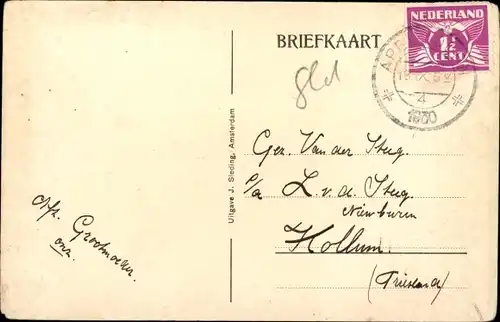 BRIEFKAART
NEDERLAND
1½
CENT
4
1930
gld
Uitgave J. Sleding, Amsterdam
Gez. Van der Stug.
p/a L. v. d. Stug
Nieuwburen
Hollum.
(Friesland)
Afz. Grootmoeder